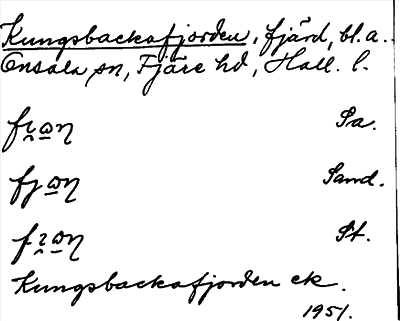 Kungsbackafjorden, fjärd, bl.a.
Onsala sn, Fjäre hd, Hall. l.
Sa.
Sand.
St.
Kungsbackafjorden ek.
1951.